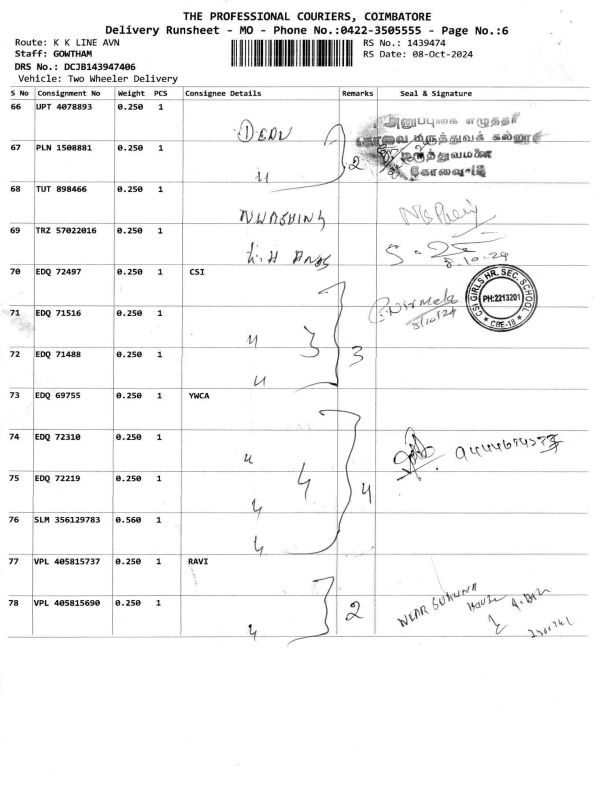 THE PROFESSIONAL COURIERS, COIMBATORE
Delivery Runsheet - MO - Phone No.:0422-3505555 - Page No.:6
Route: K K LINE AVN
RS No.: 1439474
Staff: GOWTHAM
RS Date: 08-Oct-2024
DRS No.: DCJB143947406
Vehicle: Two Wheeler Delivery
S No Consignment No Weight PCS Consignee Details Remarks Seal & Signature
66 UPT 4078893 0.250 1
அனுப்புகை எழுத்தர்
கோவை மருத்துவக் கல்லூரி
67 PLN 1508881 0.250 1 2
மருத்துவமனை
கோவை
68 TUT 898466 0.250 1
69 TRZ 57022016 0.250 1
8-10-24
70 EDQ 72497 0.250 1 CSI
CSI GIRLS HR. SEC. SCHOOL
PH:2213201
* CBE-18 *
71 EDQ 71516 0.250 1 3 3
Nirmala
8/10/24
72 EDQ 71488 0.250 1
73 EDQ 69755 0.250 1 YWCA
74 EDQ 72310 0.250 1
75 EDQ 72219 0.250 1 4 4
76 SLM 356129783 0.560 1
77 VPL 405815737 0.250 1 RAVI
78 VPL 405815690 0.250 1 2
NEAR